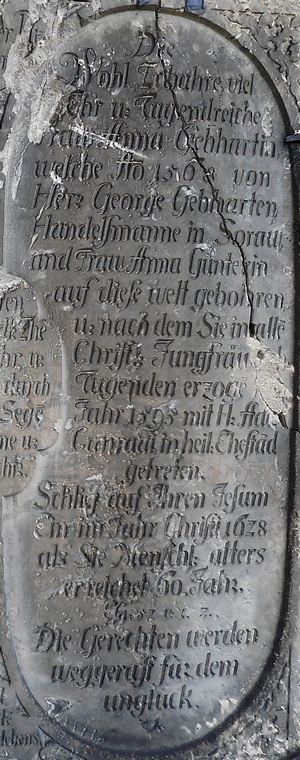 Die
Wohl Erbahre, viel
Ehr u: Tugendreiche
Frau Anna Gebhartin,
welche Ao 1568 von
Herz George Gebharten,
Handelsmanne in Sorau,
und Frau Anna Gunterin
auf diese welt gebohren,
u: nach dem Sie in alle
Christl: Jungfräu
Tugenden erzoge
Jahr 1595 mit H:
Cunradi in heil: Ehestād
getreten.
Schlief auf Ihren Jesum
Ein im Jahr Christi 1628
als Sie Menschl: alters
erreichet 60. Jahr.
Die Gerechten werden
weggeraft für dem
unglück.